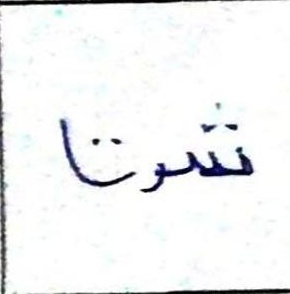 شوتا